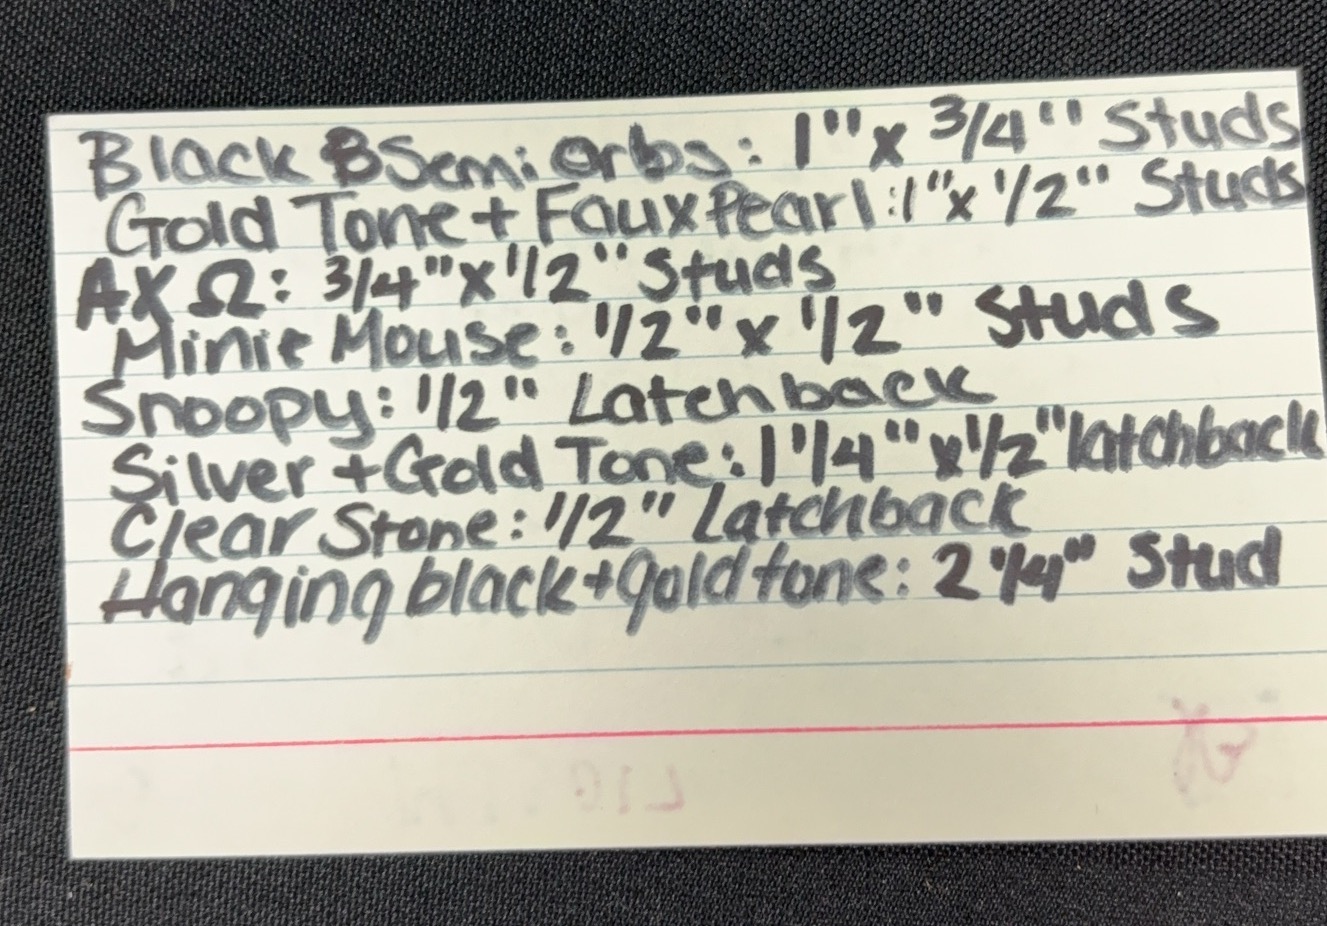 Black Semi Orbs: 1" x 3/4" Studs
Gold Tone + Faux Pearl: 1" x 1/2" Studs
AXΩ: 3/4" x 1/2" Studs
Minie Mouse: 1/2" x 1/2" Studs
Snoopy: 1/2" Latchback
Silver + Gold Tone: 1 1/4" x 1/2" latchback
Clear Stone: 1/2" Latchback
Hanging black + gold tone: 2 1/4" Stud